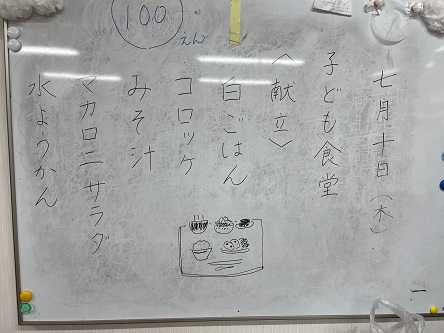 七月十日(木)
子ども食堂
〈献立〉
白ごはん
コロッケ
みそ汁
マカロニサラダ
水ようかん
100
えん